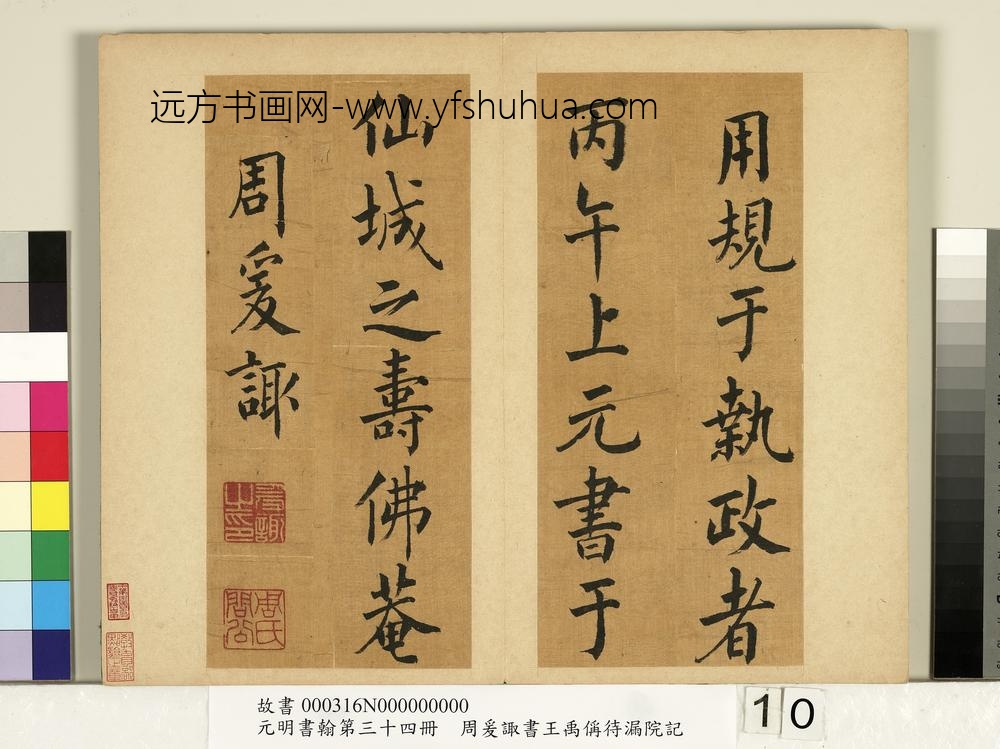 远方书画网-www.yfshuhua.com
用規于執政者
丙午上元書于
仙城之壽佛菴
周爰諏
爰諏之印
故書 000316N000000000
元明書翰第三十四冊 周爰諏書王禹偁待漏院記
10